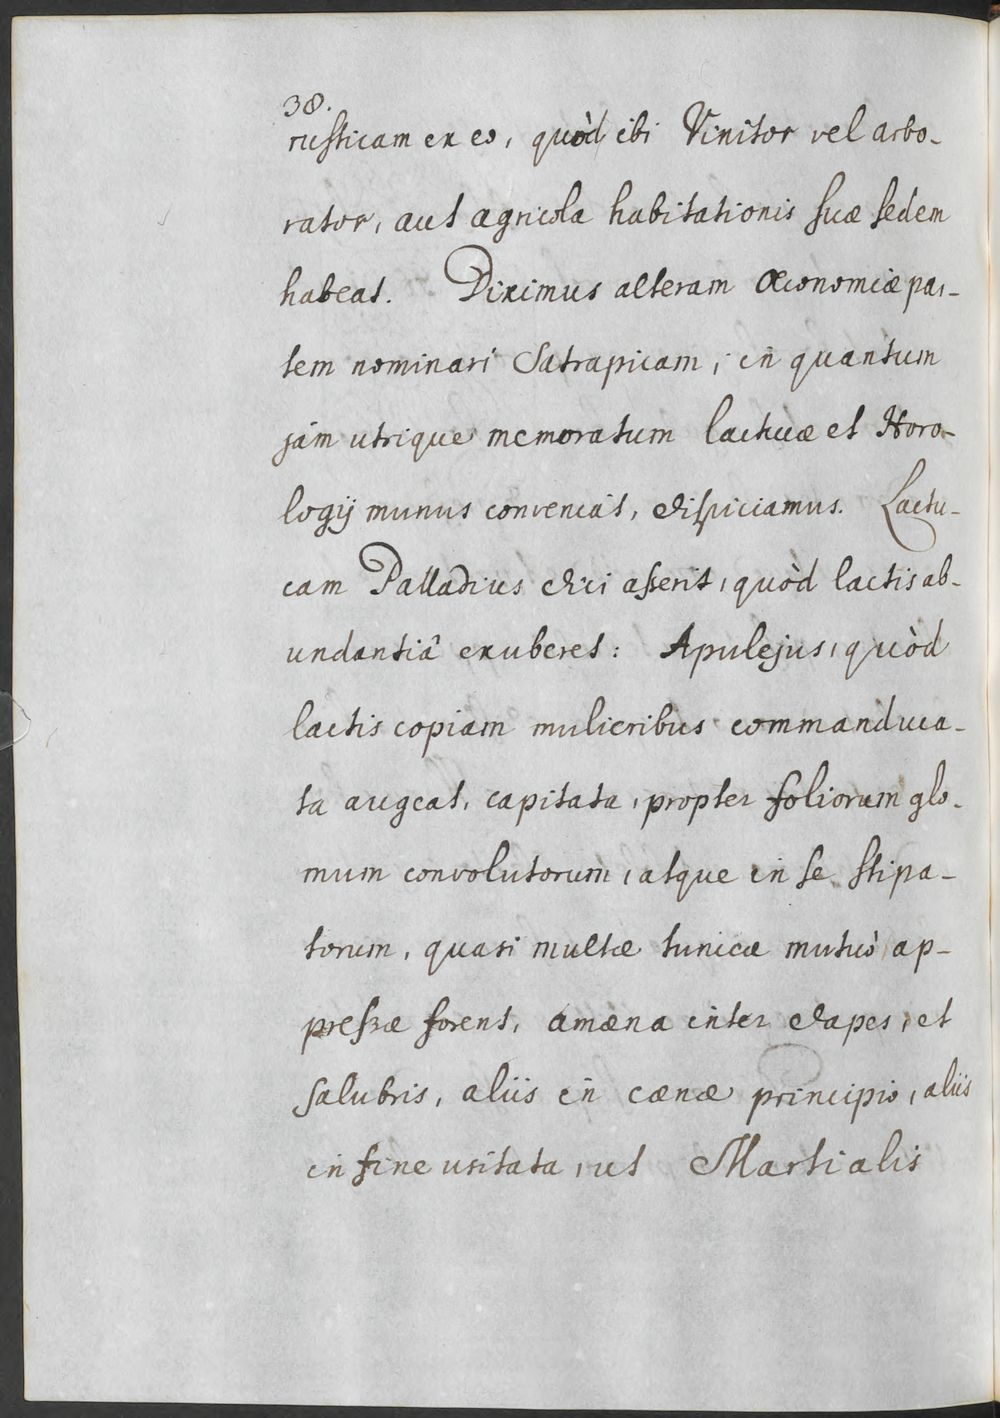 38.
rusticam ex eo, quòd ibi Vinitor vel arbo-
rator, aut agricola habitationis suæ sedem
habeat. Diximus alteram Œconomiæ par-
tem nominari Satrapicam, in quantum
jám utrique memoratum lactucæ et Horo-
logij munus conveniat, dispiciamus. Lactu-
cam Palladius dici asserit, quòd lactis ab-
undantiâ exuberet: Apulejus, quòd
lactis copiam mulieribus commanduca-
ta augeat, capitata, propter foliorum glo-
mum convolutorum, atque in se stipa-
torum, quasi multæ tunicæ mutuò ap-
pressæ forent, amæna inter dapes, et
salubris, aliis in cænæ principio, aliis
in fine usitata, ut Martialis